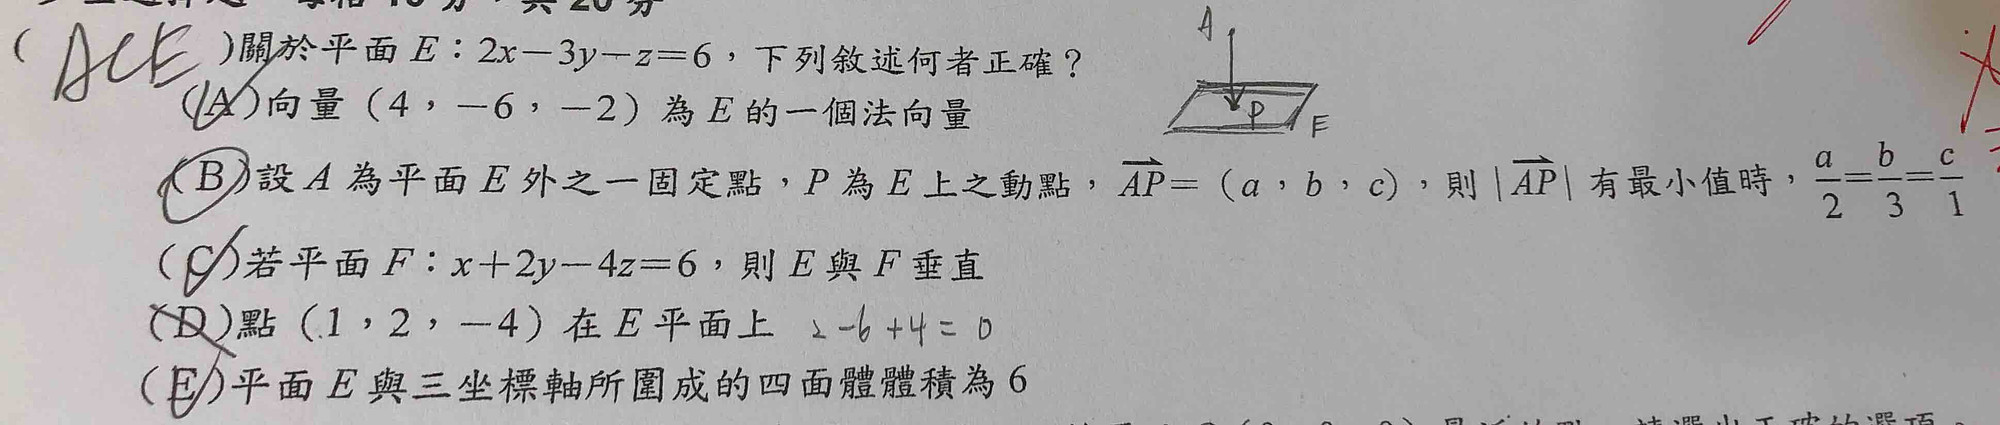 (ACE)關於平面 E：2x－3y－z＝6，下列敘述何者正確？
(A)向量（4，－6，－2）為 E 的一個法向量
(B)設 A 為平面 E 外之一固定點，P 為 E 上之動點，\overrightarrow{AP}＝（a，b，c），則 |\overrightarrow{AP}| 有最小值時，\frac{a}{2}=\frac{b}{3}=\frac{c}{1}
(C)若平面 F：x＋2y－4z＝6，則 E 與 F 垂直
(D)點（1，2，－4）在 E 平面上 2-6+4=0
(E)平面 E 與三坐標軸所圍成的四面體體積為 6
A
P
E